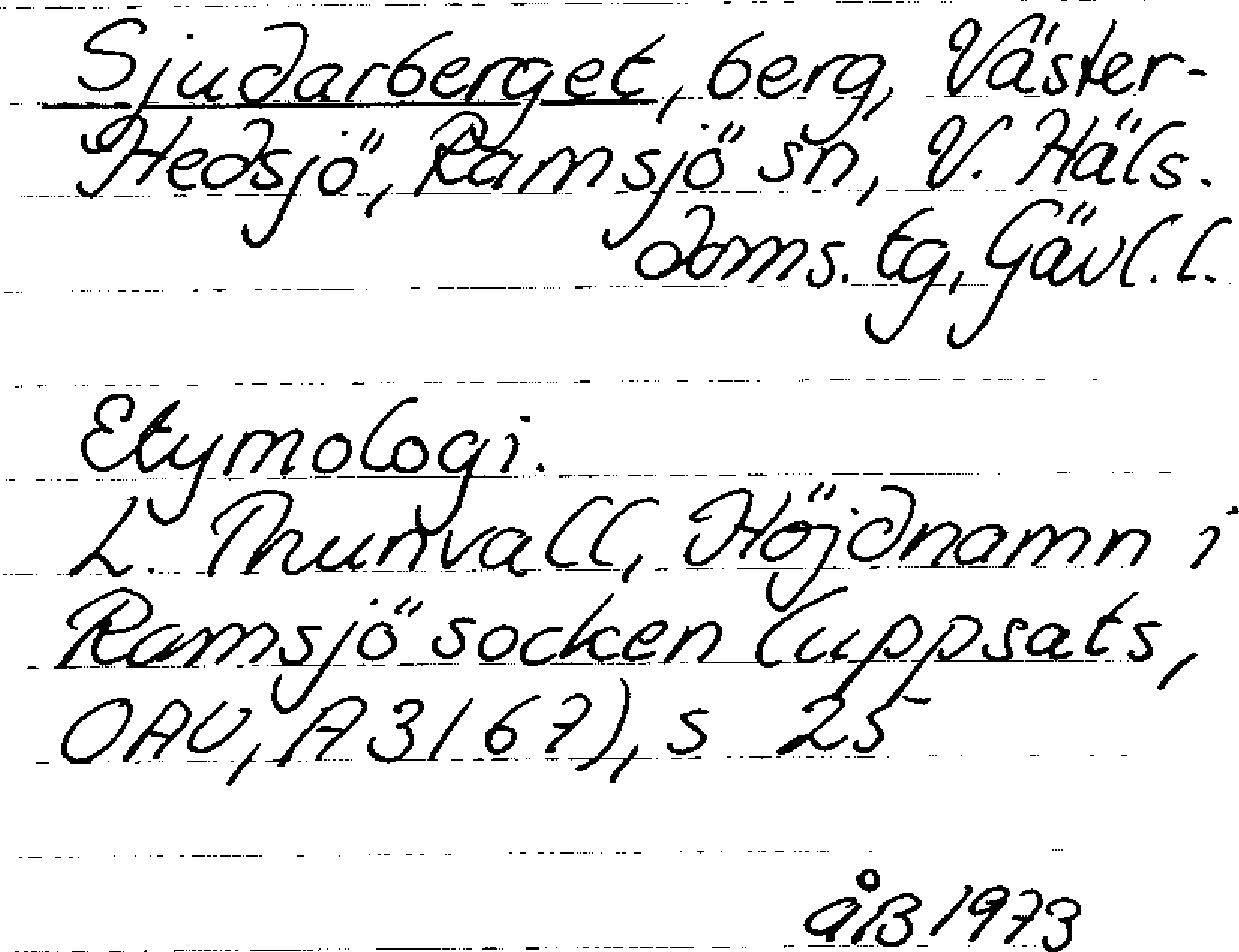 Sjudarberget, berg, Väster-
Hedsjö, Ramsjö sn, V. Häls.
doms. tg, Gävl. l.
Etymologi.
L. Thunvall, Höjdnamn i
Ramsjö socken (uppsats,
OAU, A 3167), s 25
åB 1973